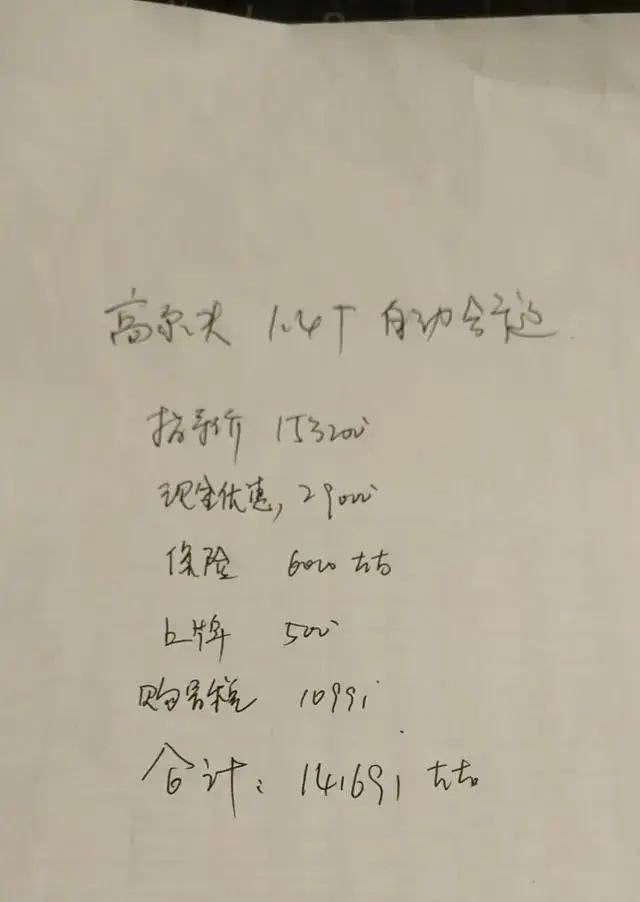 高尔夫 1.4T 自动舒适
指导价 153200
现金优惠, 29000
保险 6000 左右
上牌 500
购置税 10991
合计: 141691 左右